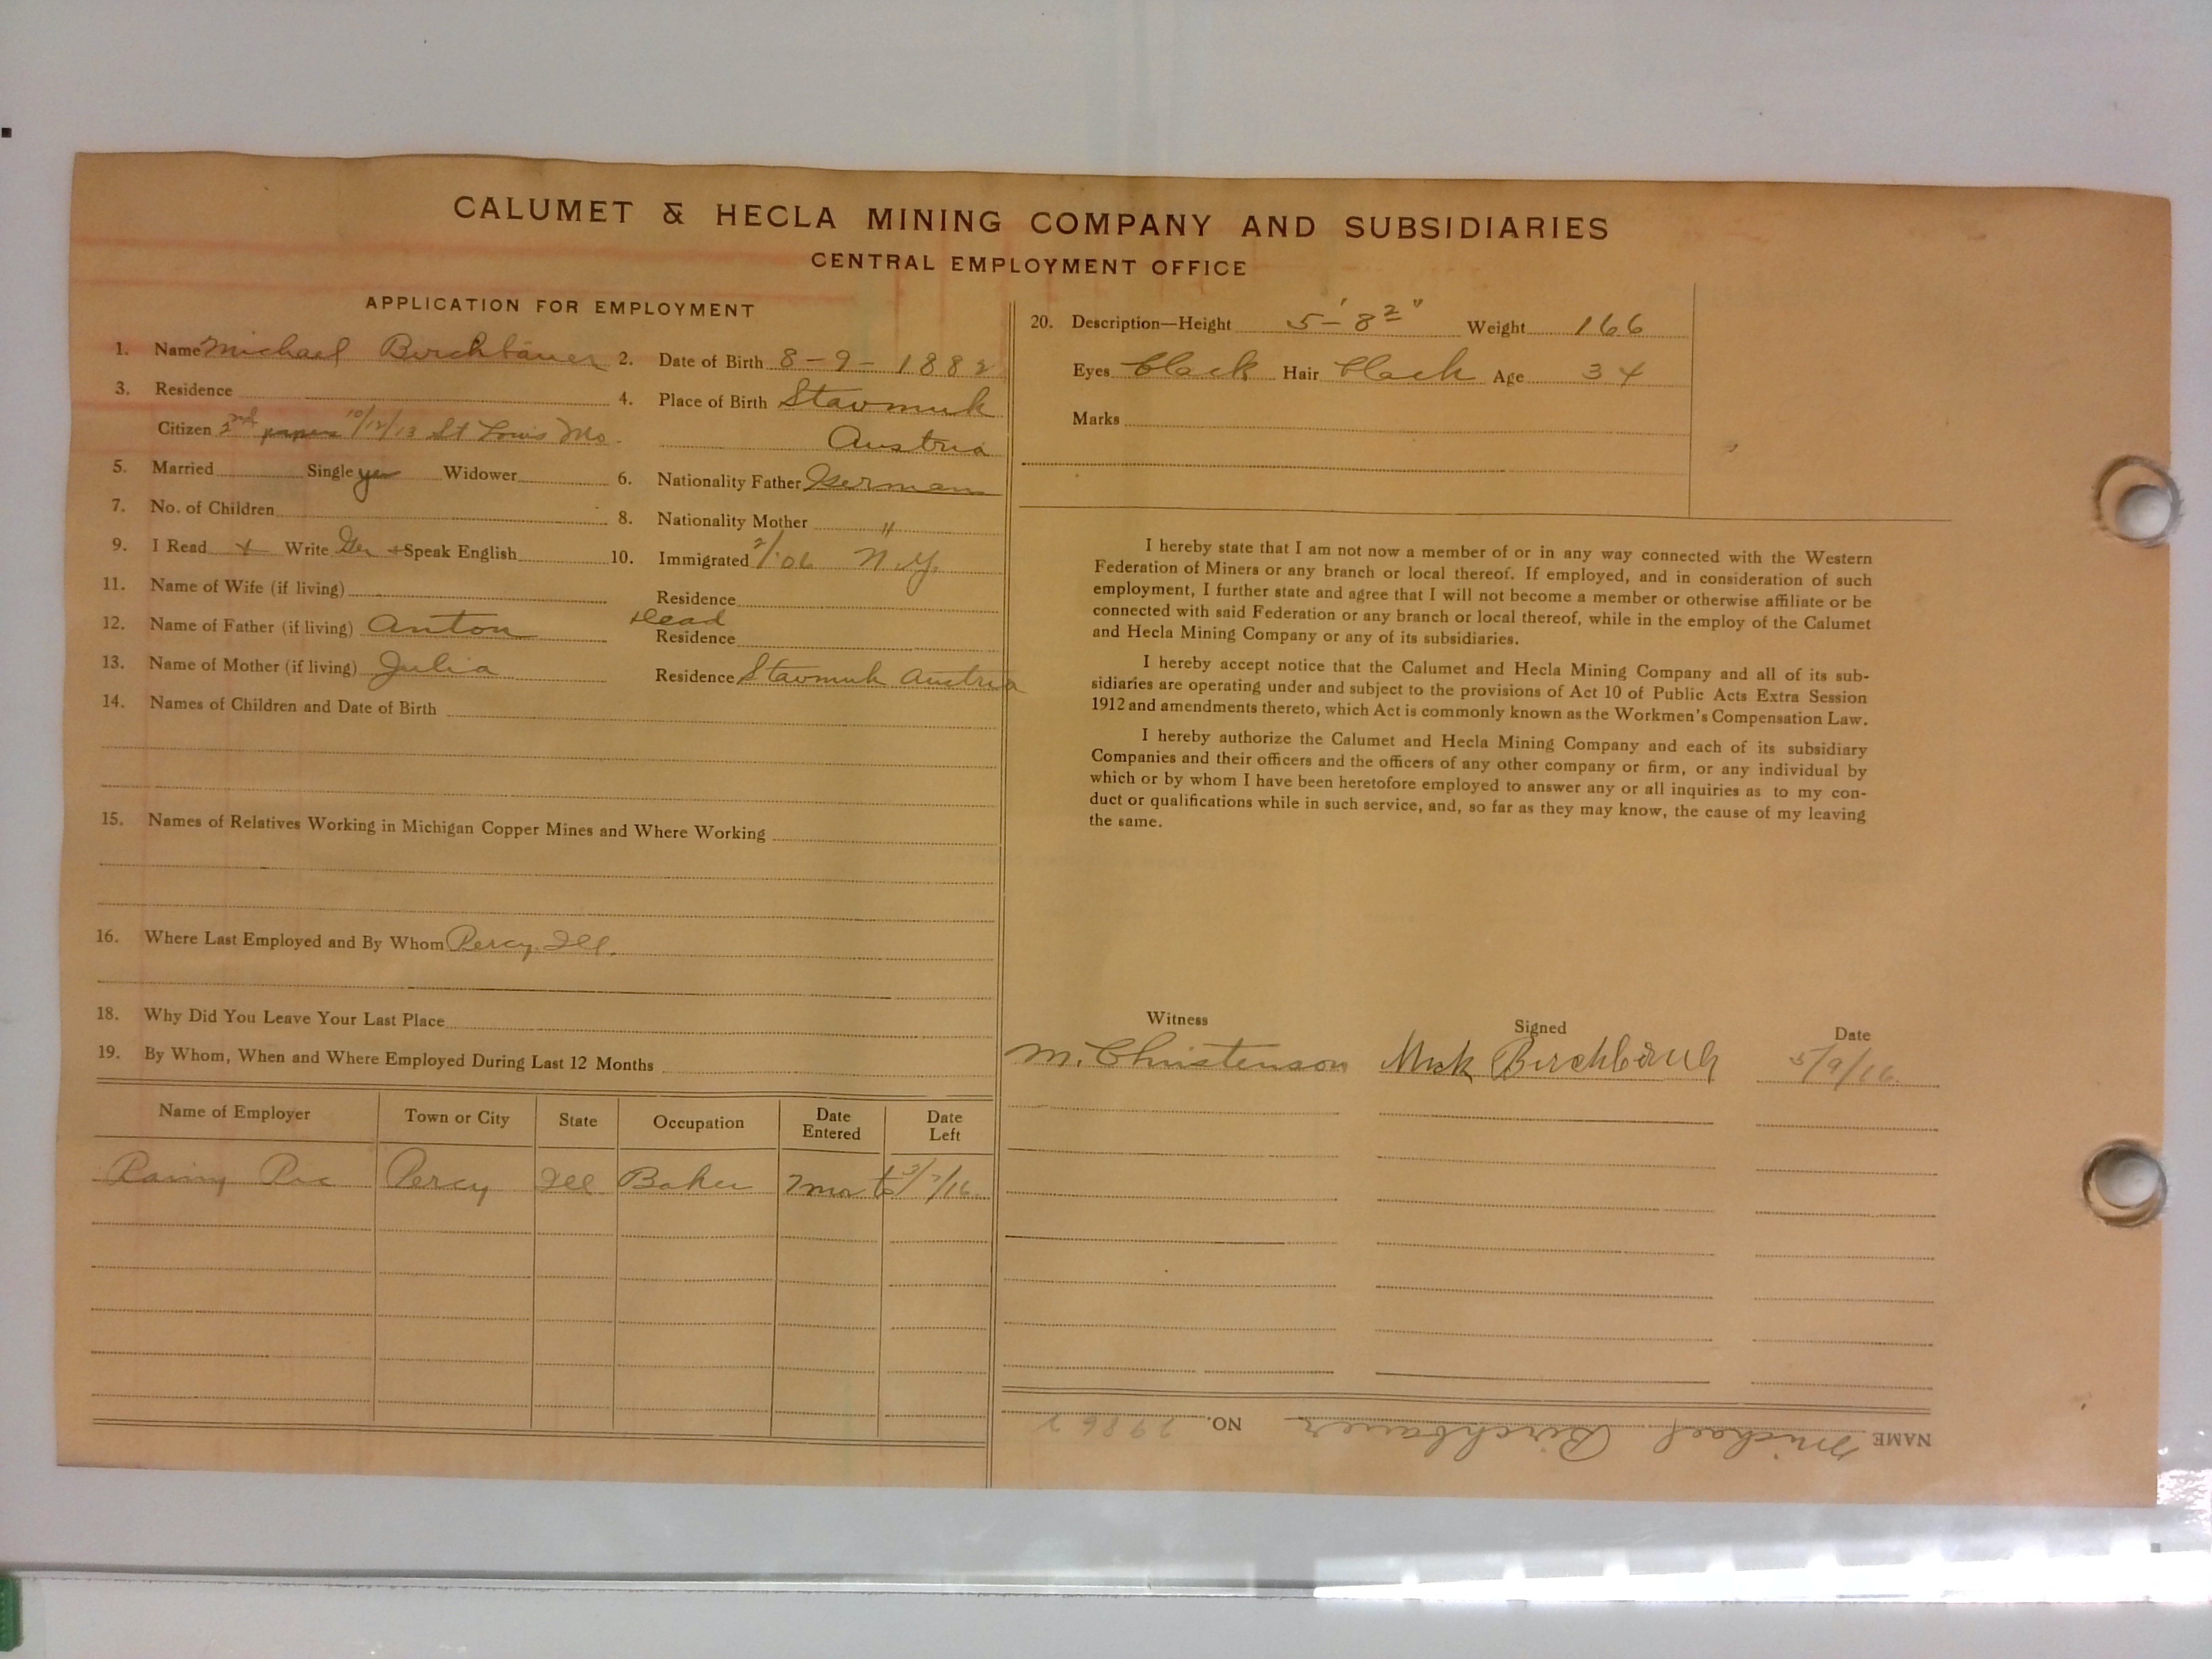 CALUMET & HECLA MINING COMPANY AND SUBSIDIARIES
CENTRAL EMPLOYMENT OFFICE
APPLICATION FOR EMPLOYMENT
1. Name Michael Birchbauer 2. Date of Birth 8-9-1882
3. Residence 4. Place of Birth Stavmuk
Citizen 2nd papers 10/12/13 St Louis Mo. Austria
5. Married Single yes Widower 6. Nationality Father German
7. No. of Children 8. Nationality Mother "
9. I Read + Write Ger + Speak English 10. Immigrated 2/'06 N.Y.
11. Name of Wife (if living) Residence
12. Name of Father (if living) Anton Dead Residence
13. Name of Mother (if living) Julia Residence Stavmuk Austria
14. Names of Children and Date of Birth
15. Names of Relatives Working in Michigan Copper Mines and Where Working
16. Where Last Employed and By Whom Percy, Ill.
18. Why Did You Leave Your Last Place
19. By Whom, When and Where Employed During Last 12 Months
Name of Employer Town or City State Occupation Date Entered Date Left
Percy Ill Baker 7 mos to 3/7/16
20. Description—Height 5'-8 2" Weight 166
Eyes black Hair black Age 34
Marks
I hereby state that I am not now a member of or in any way connected with the Western
Federation of Miners or any branch or local thereof. If employed, and in consideration of such
employment, I further state and agree that I will not become a member or otherwise affiliate or be
connected with said Federation or any branch or local thereof, while in the employ of the Calumet
and Hecla Mining Company or any of its subsidiaries.
I hereby accept notice that the Calumet and Hecla Mining Company and all of its sub-
sidiaries are operating under and subject to the provisions of Act 10 of Public Acts Extra Session
1912 and amendments thereto, which Act is commonly known as the Workmen's Compensation Law.
I hereby authorize the Calumet and Hecla Mining Company and each of its subsidiary
Companies and their officers and the officers of any other company or firm, or any individual by
which or by whom I have been heretofore employed to answer any or all inquiries as to my con-
duct or qualifications while in such service, and, so far as they may know, the cause of my leaving
the same.
Witness Signed Date
M. Christenson 5/9/16
NAME Michael Birchbauer NO. 29862